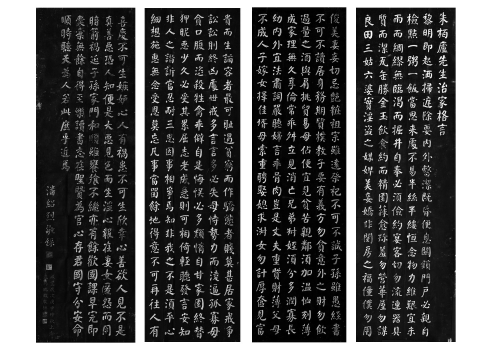 朱柏廬先生治家格言
黎明即起洒掃庭除要內外整潔既昏便息關鎖門戶必親自
檢點一粥一飯當思來處不易半絲半縷恆念物力維艱宜未
雨而綢繆無臨渴而掘井自奉必須儉約宴客切勿流連器具
質而潔瓦缶勝金玉飲食約而精園蔬愈珍羞勿營華屋勿謀
良田三姑六婆實淫盜之媒婢美妾嬌非閨房之福僮僕勿用
俊美妻妾切忌艷妝祖宗雖遠祭祀不可不誠子孫雖愚經書
不可不讀居身務期質樸教子要有義方勿貪意外之財勿飲
過量之酒與肩挑貿易毋佔便宜見貧苦親鄰須加溫恤刻薄
成家理無久享倫常乖舛立見消亡兄弟叔姪須分多潤寡長
幼內外宜法肅詞嚴聽婦言乖骨肉豈是丈夫重貲財薄父母
不成人子嫁女擇佳婿毋索重聘娶媳求淑女勿計厚奩見富
貴而生諂容者最可恥遇貧窮而作驕態者賤莫甚居家戒爭
訟訟則終凶處世戒多言言多必失毋恃勢力而凌逼孤寡毋
貪口腹而恣殺牲禽乖僻自是悔誤必多頹惰自甘家園終替
狎昵惡少久必受其累屈志老成急則可相倚輕聽發言安知
非人之譖訴當忍耐三思因事相爭焉知非我之不是須平心
暗想施惠無念受恩莫忘凡事當留餘地得意不可再往人有
喜慶不可生嫉妒心人有禍患不可生欣幸心善欲人見不是
真善惡恐人知便是大惡見色而生淫心報在妻女匿怨而用
暗箭禍延子孫家門和順雖饔飧不繼亦有餘歡國課早完即
囊橐無餘自得至樂讀書志在聖賢為官心存君國守分安命
順時聽天為人若此庶乎近焉
敬錄